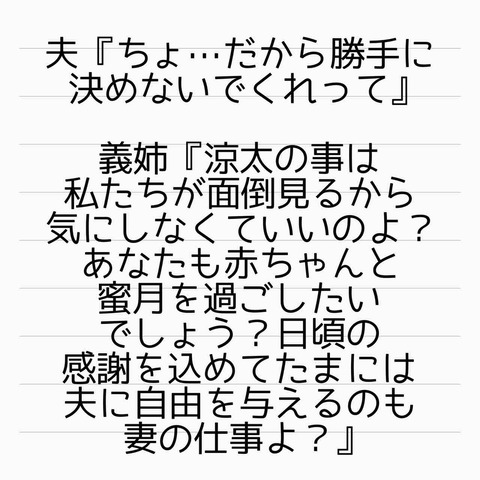 夫『ちょ…だから勝手に
決めないでくれって』
義姉『涼太の事は
私たちが面倒見るから
気にしなくていいのよ？
あなたも赤ちゃんと
蜜月を過ごしたい
でしょう？日頃の
感謝を込めてたまには
夫に自由を与えるのも
妻の仕事よ？』